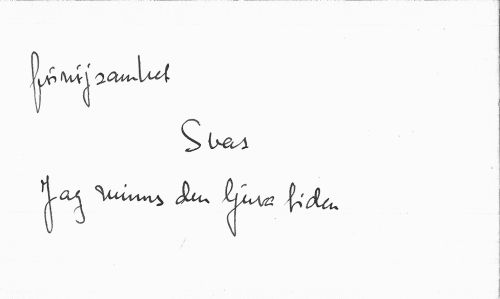 förnöjsamhet
Svas
Jag minns den ljuva tiden